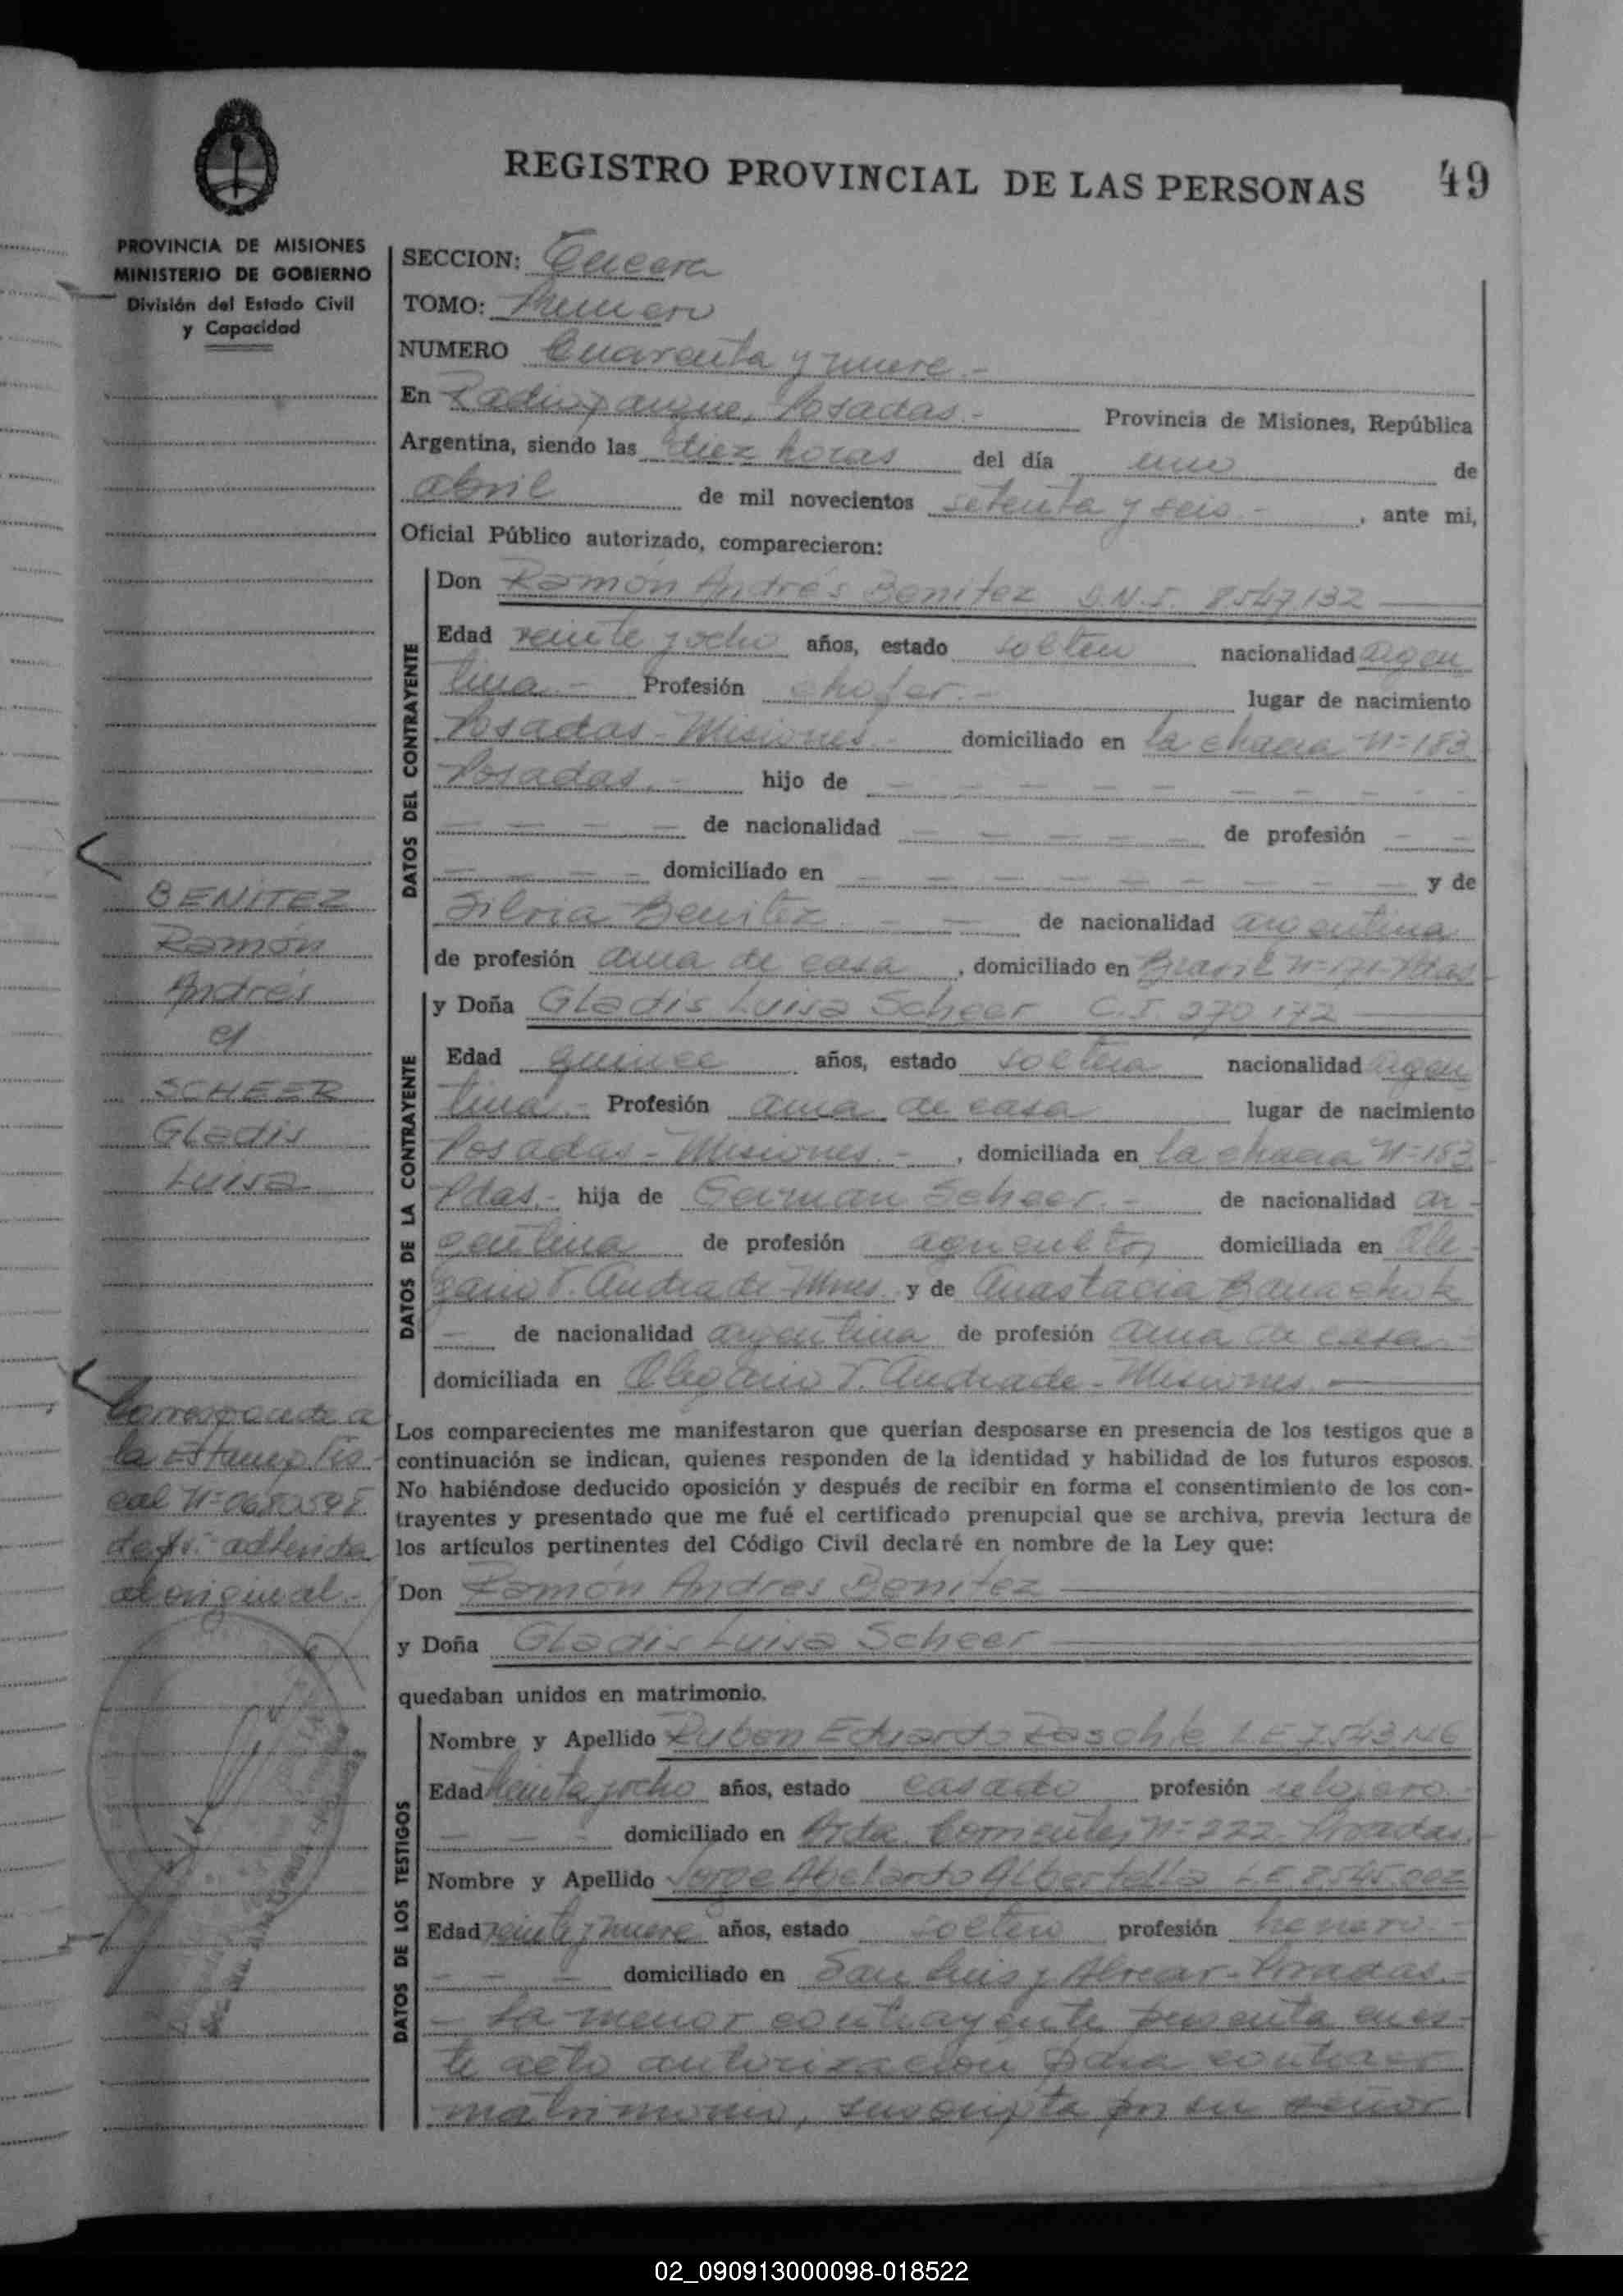 REGISTRO PROVINCIAL DE LAS PERSONAS 49
PROVINCIA DE MISIONES
MINISTERIO DE GOBIERNO
División del Estado Civil
y Capacidad
SECCION: Tercera
TOMO: Primero
NUMERO Cuarenta y nueve.-
En Posadas.- Provincia de Misiones, República
Argentina, siendo las diez horas del día uno de
abril de mil novecientos setenta y seis - , ante mi,
Oficial Público autorizado, comparecieron:
DATOS DEL CONTRAYENTE
Don Ramón Andrés Benitez D.N.I. 8547132
Edad veinte y ocho años, estado soltero nacionalidad argen
tina.- Profesión chofer.- lugar de nacimiento
Posadas - Misiones.- domiciliado en la chacra Nº 183
Posadas.- hijo de - - - - - - - -
- - - - de nacionalidad - - - - - de profesión - -
- - - - domiciliado en - - - - - - - y de
Silvia Benitez - - de nacionalidad argentina
de profesión ama de casa , domiciliado en Brasil Nº 171 Pdas
DATOS DE LA CONTRAYENTE
y Doña Gladis Luisa Scheer C.I. 270.172
Edad quince años, estado soltera nacionalidad argen
tina.- Profesión ama de casa lugar de nacimiento
Posadas - Misiones.- , domiciliada en la chacra Nº 183
Pdas.- hija de German Scheer.- de nacionalidad ar-
gentina de profesión agricultor domiciliada en Ole-
gario V. Andrade - Mnes. y de Anastacia Banachok
- de nacionalidad argentina de profesión ama de casa -
domiciliada en Olegario V. Andrade - Misiones.
Los comparecientes me manifestaron que querían desposarse en presencia de los testigos que a
continuación se indican, quienes responden de la identidad y habilidad de los futuros esposos.
No habiéndose deducido oposición y después de recibir en forma el consentimiento de los con-
trayentes y presentado que me fué el certificado prenupcial que se archiva, previa lectura de
los artículos pertinentes del Código Civil declaré en nombre de la Ley que:
Don Ramón Andres Benitez
y Doña Gladis Luisa Scheer
quedaban unidos en matrimonio.
DATOS DE LOS TESTIGOS
Nombre y Apellido Ruben Eduardo Raschle L.E 7.543.146
Edad treinta y ocho años, estado casado profesión relojero
- - - domiciliado en Avda. Corrientes Nº 222 Posadas.
Nombre y Apellido Jorge Abelardo Albertella L.E. 8.545.002
Edad veinte y nueve años, estado soltero profesión herrero -
- - - domiciliado en San Luis y Alvear - Posadas.-
- La menor contrayente presenta en es-
te acto autorización para contraer
matrimonio, suscripta por su señor
BENITEZ
Ramón
Andrés
c/
SCHEER
Gladis
Luisa
Corresponde a
la Estamp. Fis-
cal Nº
adherida
al original.-
02_090913000098-018522